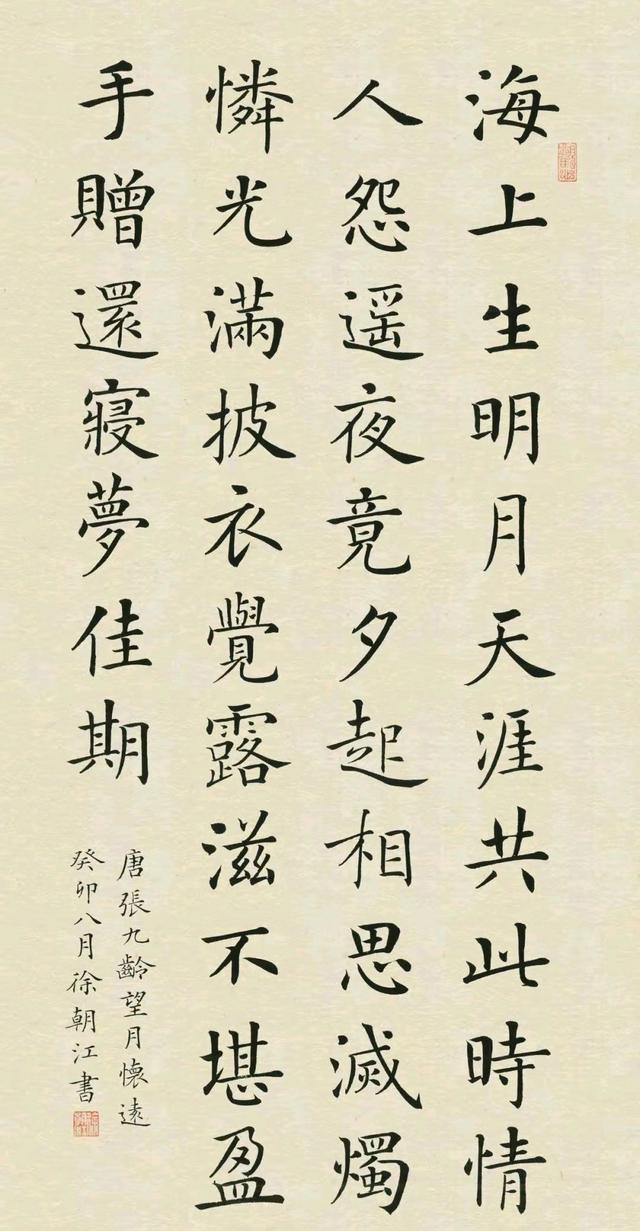 海上生明月天涯共此時情
人怨遥夜竟夕起相思滅燭
憐光滿披衣覺露滋不堪盈
手贈還寝夢佳期
唐張九齡望月懷遠
癸卯八月徐朝江書